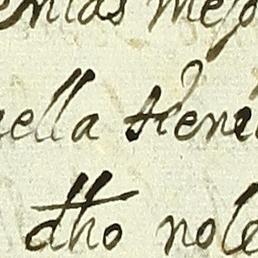 enias mejo
ella tiene
dho nole